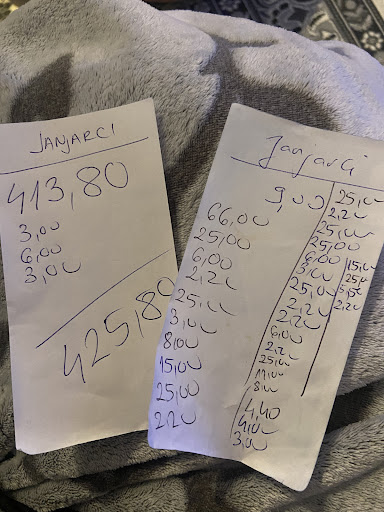 JANJARCI
413,80
3,00
6,00
3,00
425,80
Janjarci
66,00
25,00
6,00
2,20
25,00
3,00
8,00
15,00
25,00
2,20
9,00
25,00
25,00
6,00
3,00
25,00
2,20
2,20
6,00
2,20
25,00
11,00
8,00
4,40
4,00
3,00
25,00
2,20
15,00
25,00
5,50
2,20